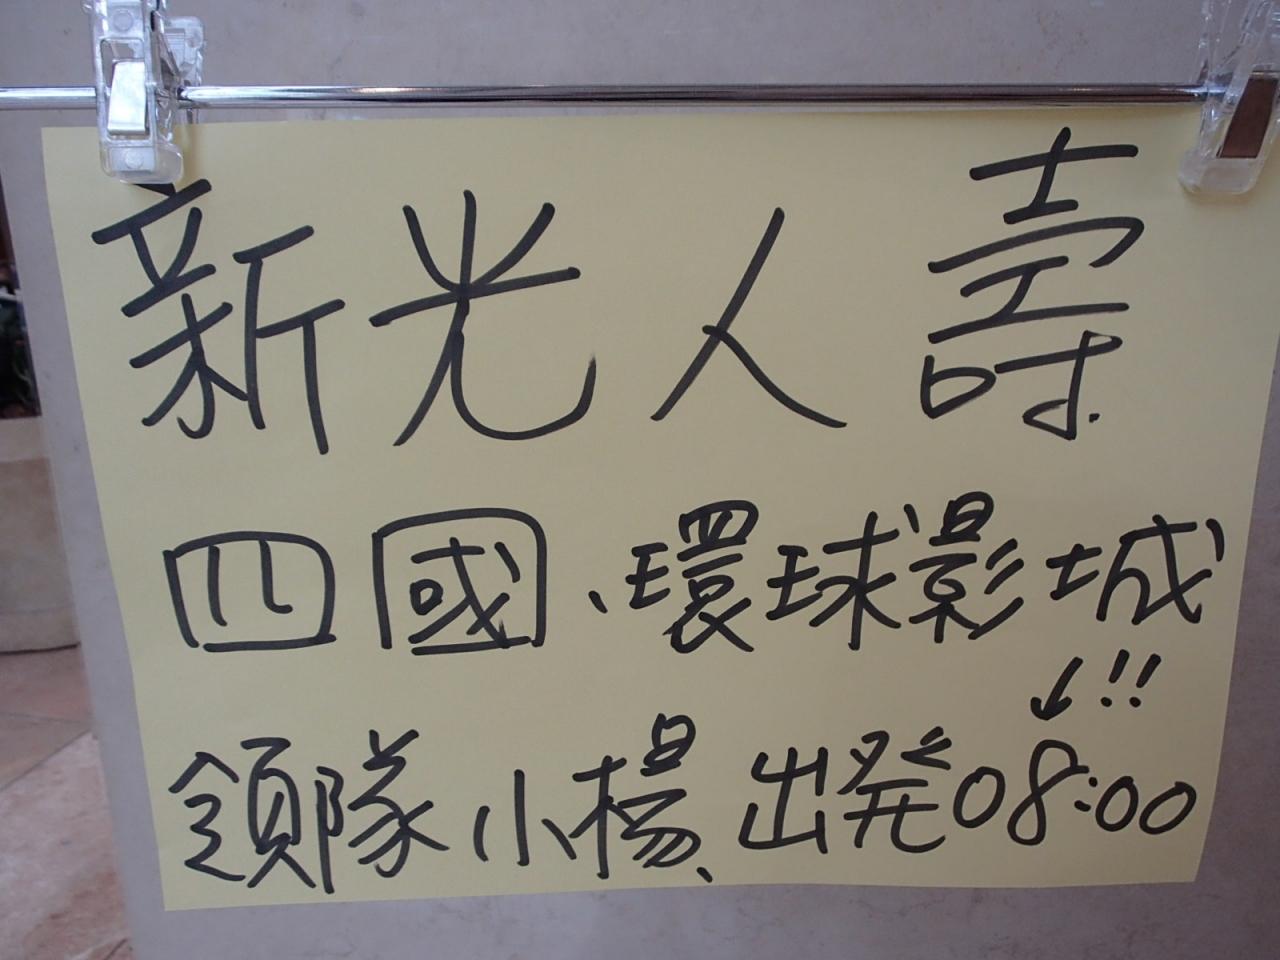 新光人壽
四國、環球影城
↓!!
領隊小楊、出発08:00